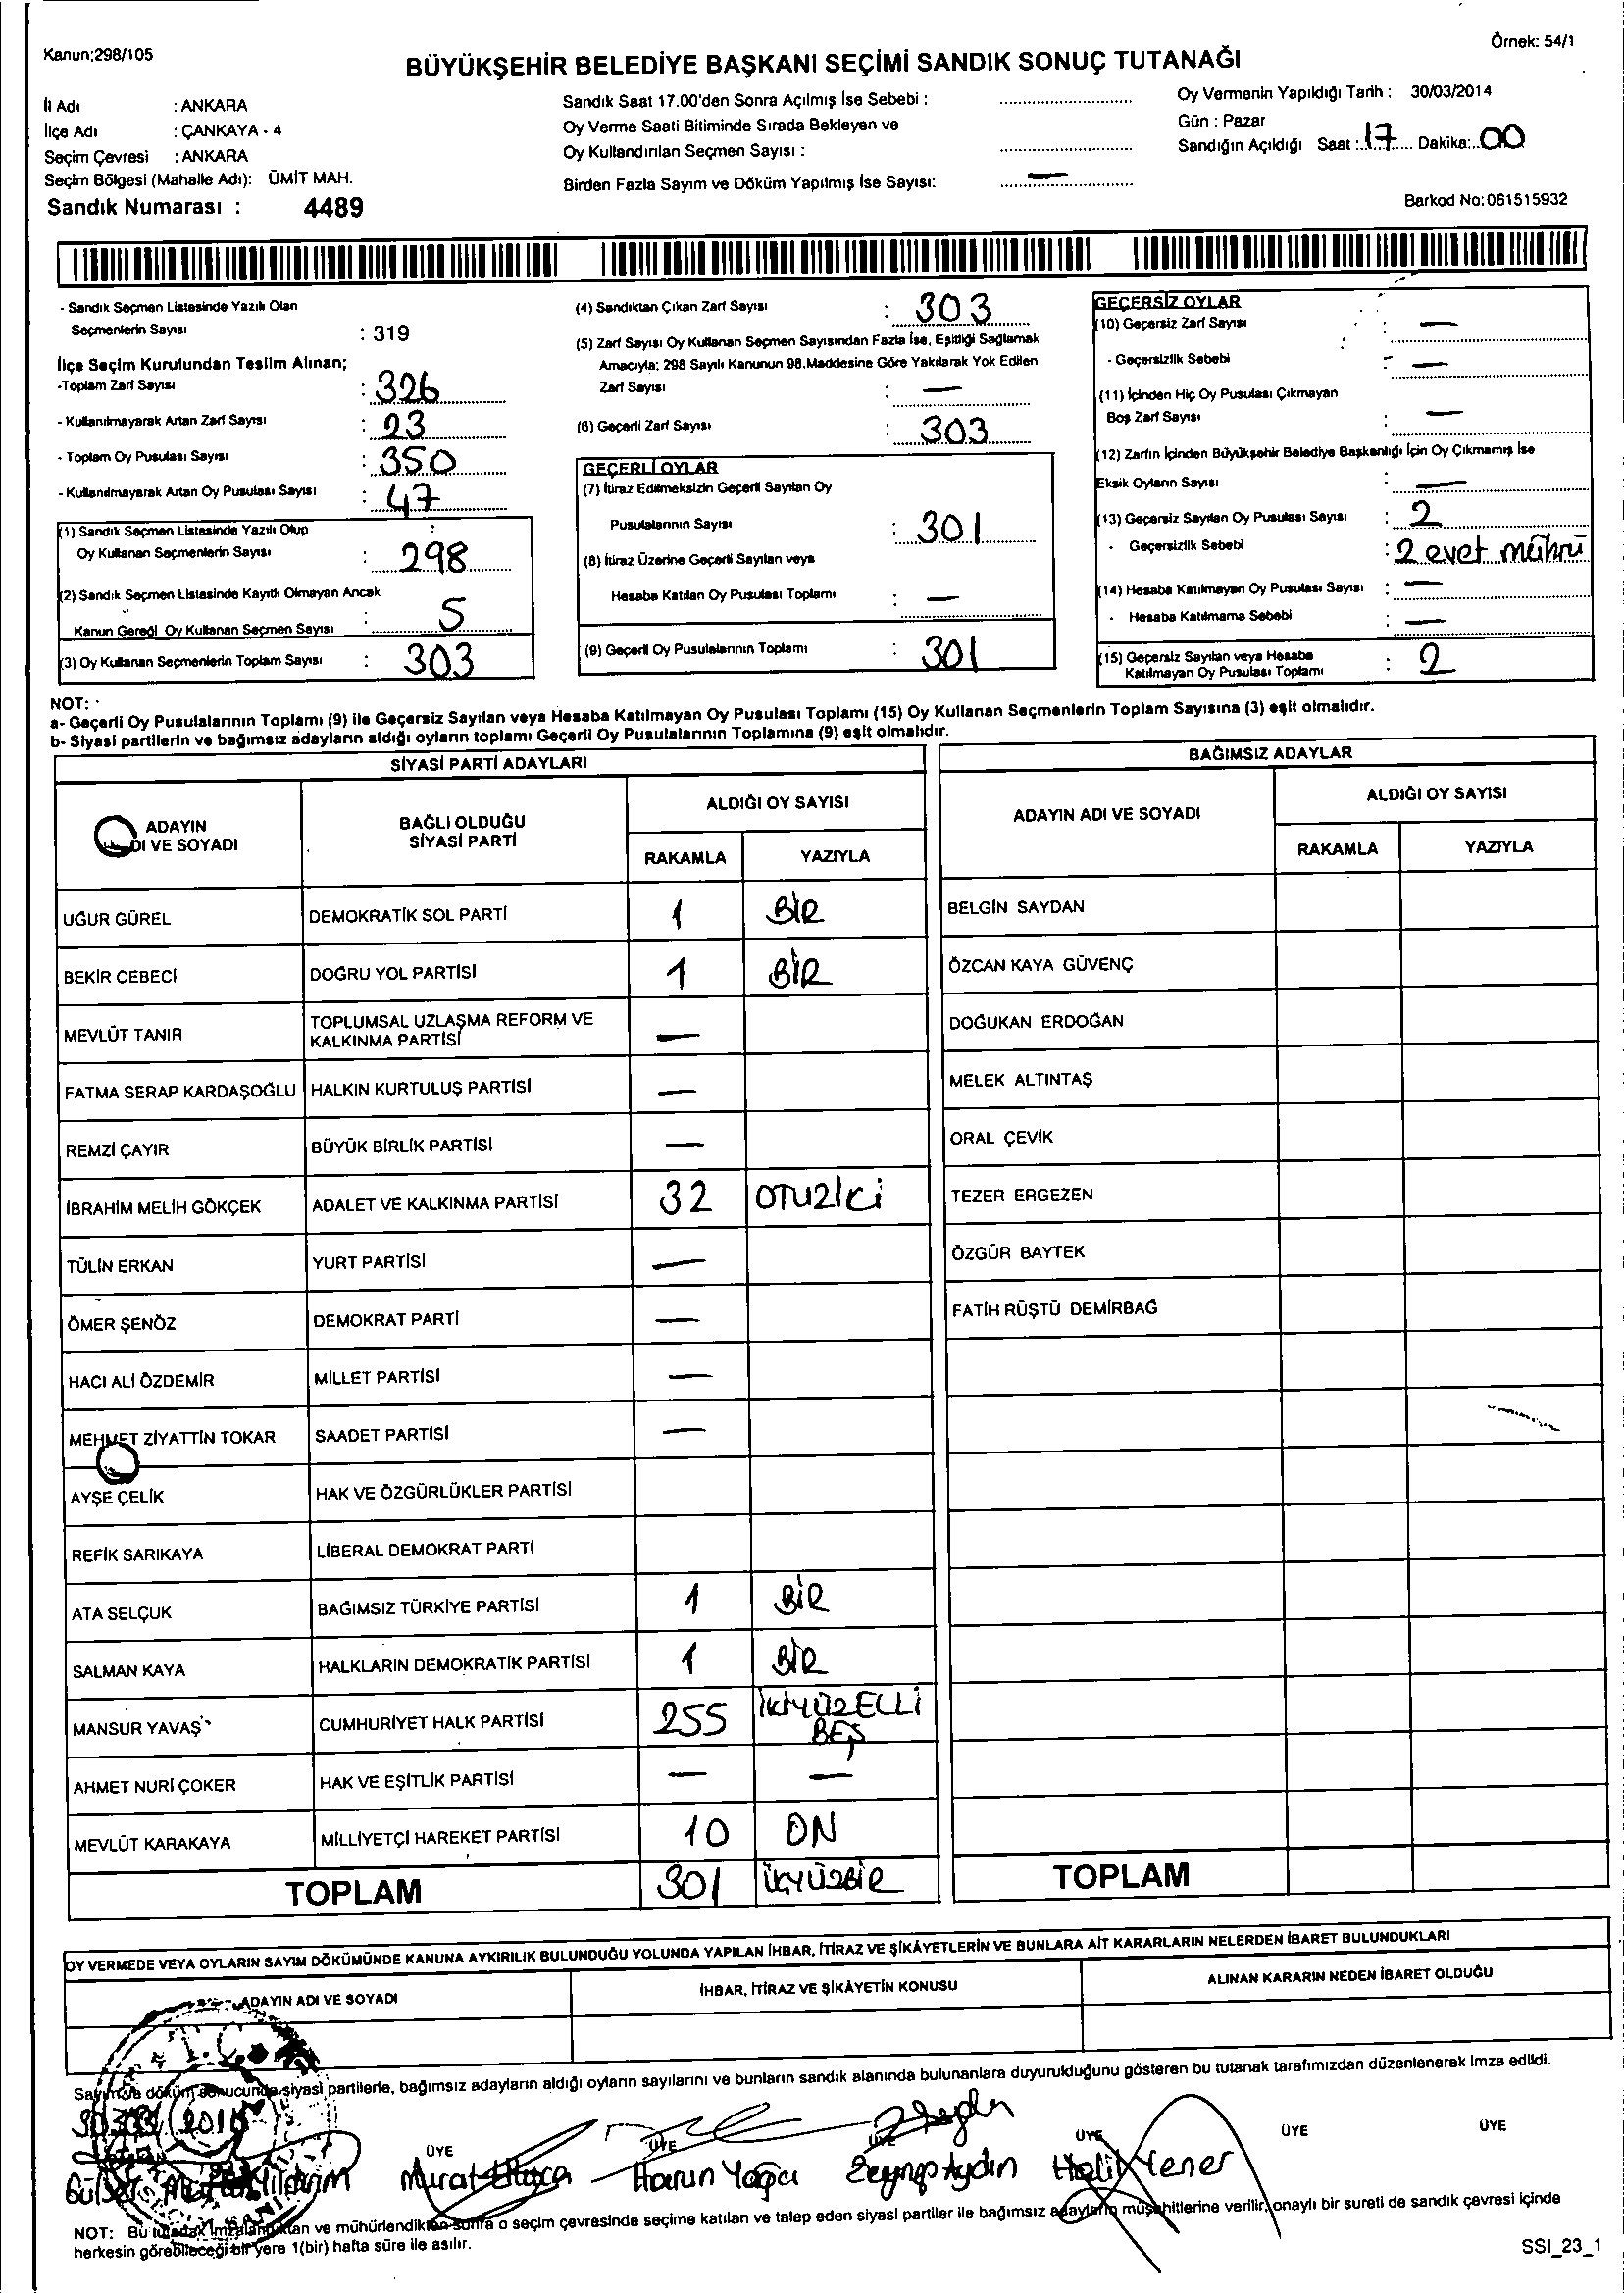 Kanun;298/105
Örnek: 54/1
BÜYÜKŞEHİR BELEDİYE BAŞKANI SEÇİMİ SANDIK SONUÇ TUTANAĞI
İl Adı : ANKARA
İlçe Adı : ÇANKAYA - 4
Seçim Çevresi : ANKARA
Seçim Bölgesi (Mahalle Adı): ÜMİT MAH.
Sandık Numarası : 4489
Sandık Saat 17.00'den Sonra Açılmış İse Sebebi :
Oy Verme Saati Bitiminde Sırada Bekleyen ve
Oy Kullandırılan Seçmen Sayısı :
Birden Fazla Sayım ve Döküm Yapılmış İse Sayısı: —
Oy Vermenin Yapıldığı Tarih : 30/03/2014
Gün : Pazar
Sandığın Açıldığı Saat : 17 Dakika: 00
Barkod No: 061515932
- Sandık Seçmen Listesinde Yazılı Olan
Seçmenlerin Sayısı : 319
İlçe Seçim Kurulundan Teslim Alınan;
-Toplam Zarf Sayısı : 326
- Kullanılmayarak Artan Zarf Sayısı : 23
- Toplam Oy Pusulası Sayısı : 350
- Kullanılmayarak Artan Oy Pusulası Sayısı : 47
(1) Sandık Seçmen Listesinde Yazılı Olup
Oy Kullanan Seçmenlerin Sayısı : 298
(2) Sandık Seçmen Listesinde Kayıtlı Olmayan Ancak
Kanun Gereği Oy Kullanan Seçmen Sayısı : 5
(3) Oy Kullanan Seçmenlerin Toplam Sayısı : 303
(4) Sandıktan Çıkan Zarf Sayısı : 303
(5) Zarf Sayısı Oy Kullanan Seçmen Sayısından Fazla İse, Eşitliği Sağlamak
Amacıyla; 298 Sayılı Kanunun 98.Maddesine Göre Yakılarak Yok Edilen
Zarf Sayısı : —
(6) Geçerli Zarf Sayısı : 303
GEÇERLİ OYLAR
(7) İtiraz Edilmeksizin Geçerli Sayılan Oy
Pusulalarının Sayısı : 301
(8) İtiraz Üzerine Geçerli Sayılan veya
Hesaba Katılan Oy Pusulası Toplamı : —
(9) Geçerli Oy Pusulalarının Toplamı : 301
GEÇERSİZ OYLAR
(10) Geçersiz Zarf Sayısı : —
- Geçersizlik Sebebi : —
(11) İçinden Hiç Oy Pusulası Çıkmayan
Boş Zarf Sayısı : —
(12) Zarfın İçinden Büyükşehir Belediye Başkanlığı İçin Oy Çıkmamış İse
Eksik Oyların Sayısı : —
(13) Geçersiz Sayılan Oy Pusulası Sayısı : 2
- Geçersizlik Sebebi : 2 evet mührü
(14) Hesaba Katılmayan Oy Pusulası Sayısı : —
- Hesaba Katılmama Sebebi : —
(15) Geçersiz Sayılan veya Hesaba
Katılmayan Oy Pusulası Toplamı : 2
NOT:
a- Geçerli Oy Pusulalarının Toplamı (9) ile Geçersiz Sayılan veya Hesaba Katılmayan Oy Pusulası Toplamı (15) Oy Kullanan Seçmenlerin Toplam Sayısına (3) eşit olmalıdır.
b- Siyasi partilerin ve bağımsız adayların aldığı oyların toplamı Geçerli Oy Pusulalarının Toplamına (9) eşit olmalıdır.
SİYASİ PARTİ ADAYLARI
ADAYIN
DI VE SOYADI
BAĞLI OLDUĞU
SİYASİ PARTİ
ALDIĞI OY SAYISI
RAKAMLA YAZIYLA
UĞUR GÜREL DEMOKRATİK SOL PARTİ 1 BİR
BEKİR CEBECİ DOĞRU YOL PARTİSİ 1 BİR
MEVLÜT TANIR TOPLUMSAL UZLAŞMA REFORM VE
KALKINMA PARTİSİ —
FATMA SERAP KARDAŞOĞLU HALKIN KURTULUŞ PARTİSİ —
REMZİ ÇAYIR BÜYÜK BİRLİK PARTİSİ —
İBRAHİM MELİH GÖKÇEK ADALET VE KALKINMA PARTİSİ 32 OTUZİKİ
TÜLİN ERKAN YURT PARTİSİ —
ÖMER ŞENÖZ DEMOKRAT PARTİ —
HACI ALİ ÖZDEMİR MİLLET PARTİSİ —
MEHMET ZİYATTİN TOKAR SAADET PARTİSİ —
AYŞE ÇELİK HAK VE ÖZGÜRLÜKLER PARTİSİ
REFİK SARIKAYA LİBERAL DEMOKRAT PARTİ
ATA SELÇUK BAĞIMSIZ TÜRKİYE PARTİSİ 1 BİR
SALMAN KAYA HALKLARIN DEMOKRATİK PARTİSİ 1 BİR
MANSUR YAVAŞ CUMHURİYET HALK PARTİSİ 255 İKİYÜZELLİ
BEŞ
AHMET NURİ ÇOKER HAK VE EŞİTLİK PARTİSİ — —
MEVLÜT KARAKAYA MİLLİYETÇİ HAREKET PARTİSİ 10 ON
TOPLAM 301 ÜÇYÜZBİR
BAĞIMSIZ ADAYLAR
ADAYIN ADI VE SOYADI
ALDIĞI OY SAYISI
RAKAMLA YAZIYLA
BELGİN SAYDAN
ÖZCAN KAYA GÜVENÇ
DOĞUKAN ERDOĞAN
MELEK ALTINTAŞ
ORAL ÇEVİK
TEZER ERGEZEN
ÖZGÜR BAYTEK
FATİH RÜŞTÜ DEMİRBAĞ
TOPLAM
OY VERMEDE VEYA OYLARIN SAYIM DÖKÜMÜNDE KANUNA AYKIRILIK BULUNDUĞU YOLUNDA YAPILAN İHBAR, İTİRAZ VE ŞİKÂYETLERİN VE BUNLARA AİT KARARLARIN NELERDEN İBARET BULUNDUKLARI
ADAYIN ADI VE SOYADI
İHBAR, İTİRAZ VE ŞİKÂYETİN KONUSU
ALINAN KARARIN NEDEN İBARET OLDUĞU
Sayım ve döküm sonucunda siyasi partilerle, bağımsız adayların aldığı oyların sayılarını ve bunların sandık alanında bulunanlara duyurulduğunu gösteren bu tutanak tarafımızdan düzenlenerek imza edildi.
ÜYE ÜYE ÜYE ÜYE ÜYE ÜYE
Yıldırım Murat Harun Yağcı Zeynep Aydın Halil Yener
NOT: Bu tutanak imzalandıktan ve mühürlendikten sonra o seçim çevresinde seçime katılan ve talep eden siyasi partiler ile bağımsız adayların müşahitlerine verilir, onaylı bir sureti de sandık çevresi içinde
herkesin görebileceği bir yere 1(bir) hafta süre ile asılır.
SSI_23_1